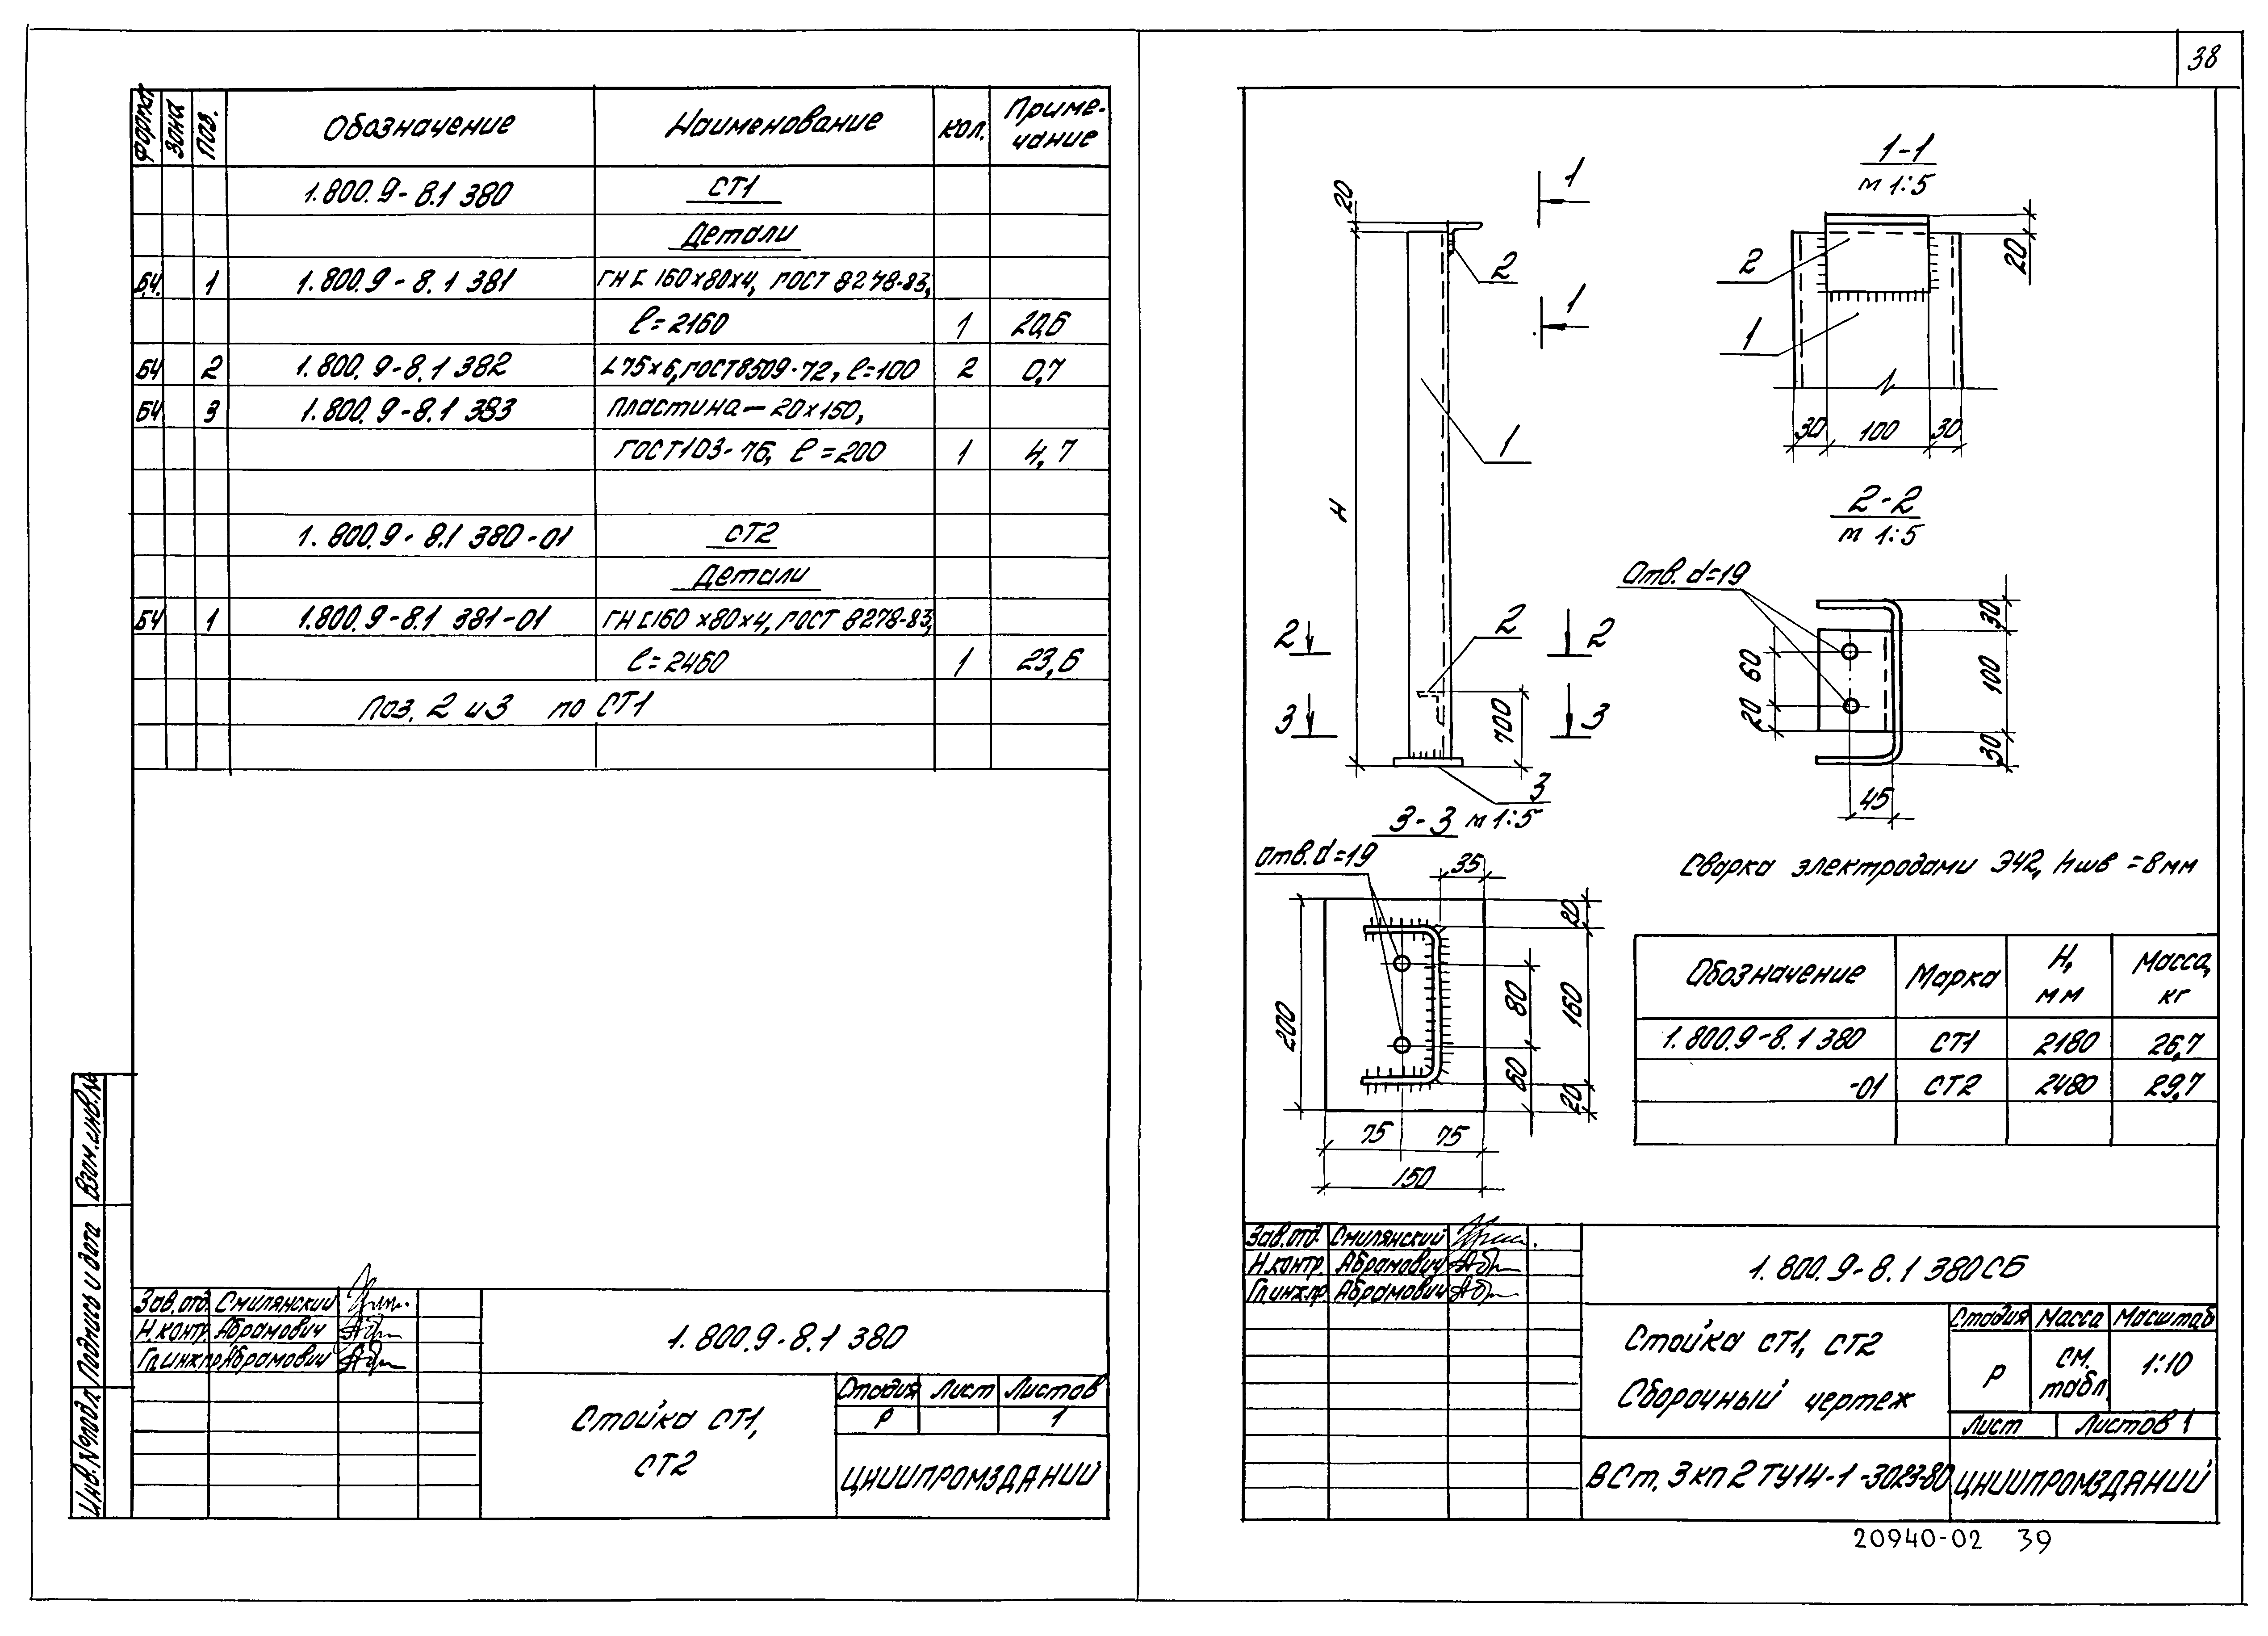 38
Формат Зона Поз. Обозначение Наименование Кол. Приме-
чание
1.800.9-8.1 380 СТ1
Детали
Б4 1 1.800.9-8.1 381 ГН [ 160х80х4, ГОСТ 8278-83,
ℓ=2160 1 20,6
Б4 2 1.800.9-8.1 382 L75х6, ГОСТ 8509-72, ℓ=100 2 0,7
Б4 3 1.800.9-8.1 383 Пластина-20х150,
ГОСТ 103-76, ℓ=200 1 4,7
1.800.9-8.1 380-01 СТ2
Детали
Б4 1 1.800.9-8.1 381-01 ГН [160х80х4, ГОСТ 8278-83,
ℓ=2460 1 23,6
Поз. 2 и 3 по СТ1
Взам.инв.№
Подпись и дата
Инв.№подл.
Зав.отд. Смилянский
Н.контр. Абрамович
Гл.инж.пр. Абрамович
1.800.9-8.1 380
Стойка СТ1,
СТ2
Стадия Лист Листов
Р 1
ЦНИИПРОМЗДАНИЙ
20
1
1
2
H
1
2
2 2
3 3
700
3
1-1
м 1:5
2
1
20
30 100 30
2-2
м 1:5
Отв. d=19
60
20
30
100
30
45
3-3 м 1:5
Отв. d=19
35
200
80
60
20
160
20
75 75
150
Сварка электродами Э42, hшв = 8мм
Обозначение Марка Н, мм Масса, кг
1.800.9-8.1 380 СТ1 2180 26,7
-01 СТ2 2480 29,7
Зав.отд. Смилянский
Н.контр. Абрамович
Гл.инж.пр. Абрамович
1.800.9-8.1 380СБ
Стойка СТ1, СТ2
Сборочный чертеж
Стадия Масса Масштаб
Р см. табл. 1:10
Лист Листов 1
ВСт.3кп2 ТУ14-1-3023-80 ЦНИИПРОМЗДАНИЙ
20940-02 39